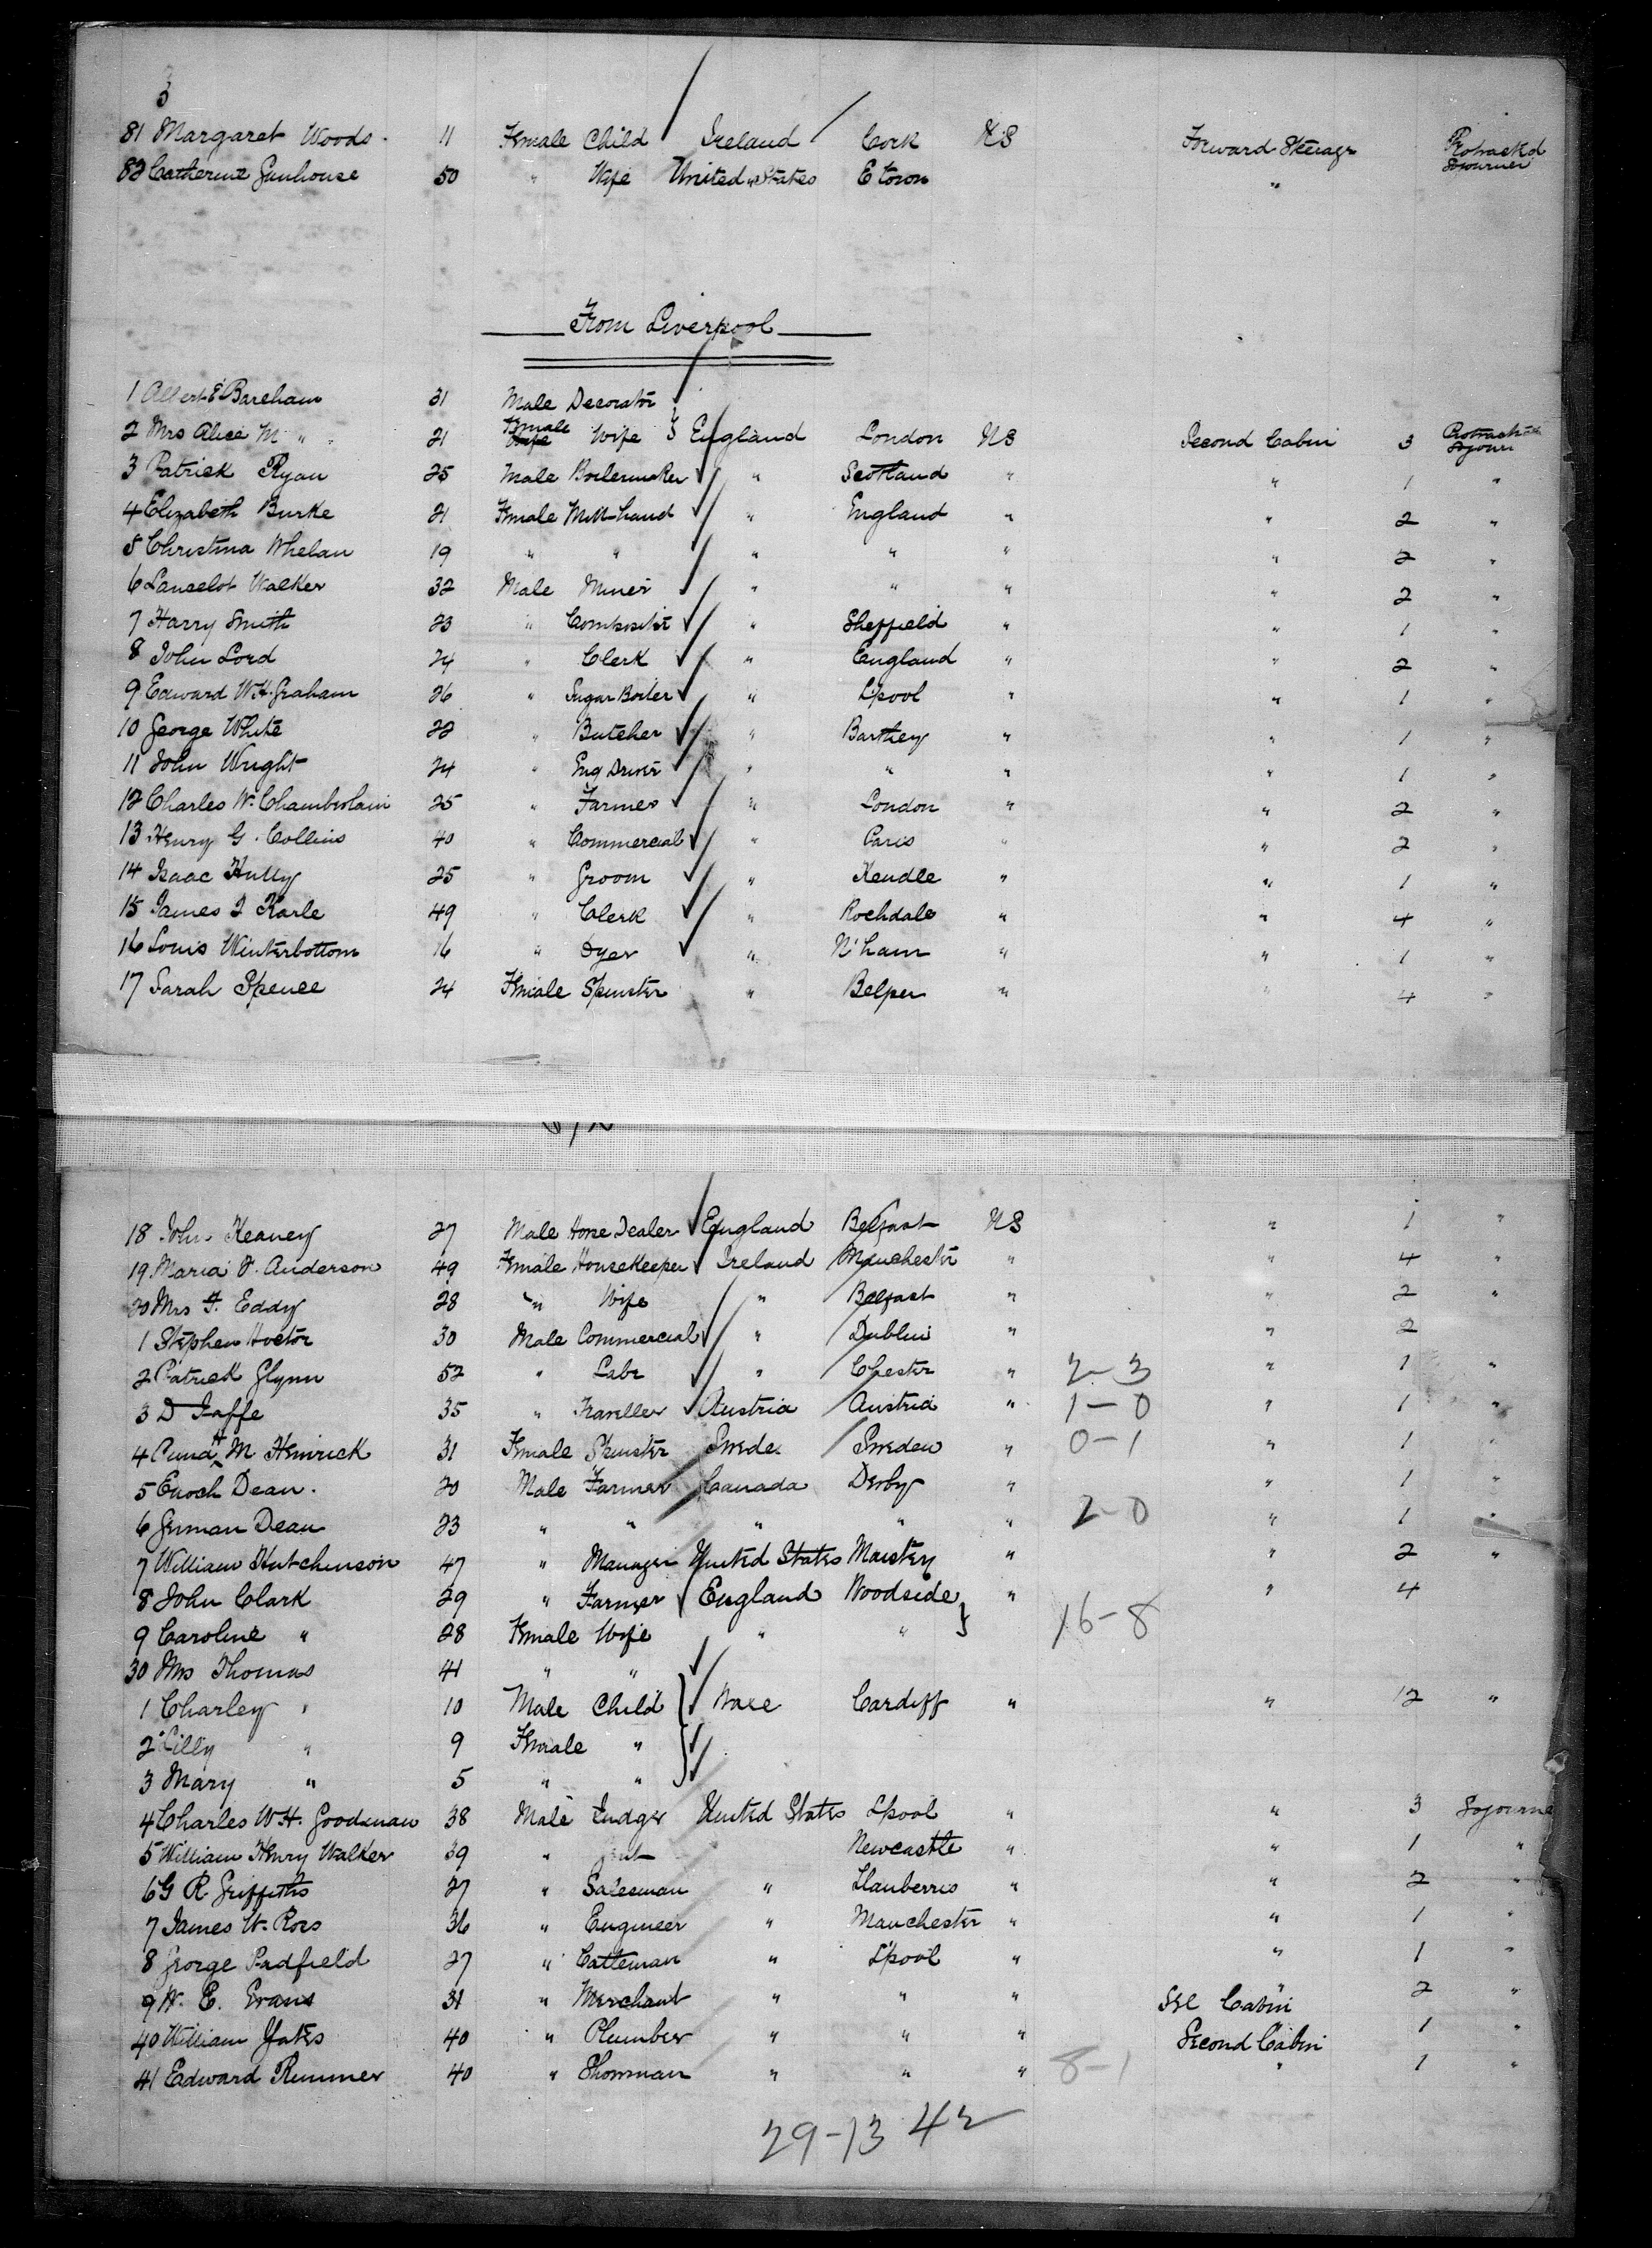 3
81 Margaret Woods 11 Female Child Ireland Cork US Forward Steerage Protracted Sojourner
82 Catherine 50 " Wife United States E town "
From Liverpool
1 Albert E Bareham 31 Male Decorator
2 Mrs Alice M " 21 Female Wife } England London US Second Cabin 3 Protracted Sojourn
3 Patrick Ryan 25 Male Boilermaker " Scotland " " 1 "
4 Elizabeth Burke 21 Female Mill-hand " England " " 2 "
5 Christina Whelan 19 " " " " " " 2 "
6 Lancelot Walker 32 Male Miner " " " " 2 "
7 Harry Smith 23 " Compositer " Sheffield " " 1 "
8 John Lord 24 " Clerk " England " " 2 "
9 Edward W.H. Graham 26 " Sugar Boiler " L'pool " " 1 "
10 George White 22 " Butcher " " " 1 "
11 John Wright 24 " Eng Driver " " " " 1 "
12 Charles W. Chamberlain 25 " Farmer " London " " 2 "
13 Henry G. Collins 40 " Commercial " Paris " " 2 "
14 Isaac Hully 25 " Groom " Kendle " " 1 "
15 James J Karle 49 " Clerk " Rochdale " " 4 "
16 Louis Winterbottom 16 " Dyer " N'ham " " 1 "
17 Sarah Spence 24 Female Spinster " Belper " " 4 "
18 John Keaney 27 Male Horse Dealer England Belfast US " 1 "
19 Maria F. Anderson 49 Female Housekeeper Ireland Manchester " " 4 "
20 Mrs F. Eddy 28 " Wife " Belfast " " 2 "
1 Stephen Hoctor 30 Male Commercial " Dublin " " 2
2 Patrick Glynn 52 " Labr " Chester " 2-3 " 1 "
3 D Jaffe 35 " Traveller Austria Austria " 1-0 " 1 "
4 M Heinrick 31 Female Spinster Swede Sweden " 0-1 " 1 "
5 Enoch Dean. 20 Male Farmer Canada Derby " " 1 "
6 German Dean 23 " " " " " 2-0 " 1 "
7 William Hutchinson 47 " Manager United States " " 2 "
8 John Clark 29 " Farmer England Woodside } " " 4
9 Caroline " 28 Female Wife " " 16-8
30 Mrs Thomas 41 " "
1 Charley " 10 Male Child } Wale Cardiff " " 12 "
2 Lilly " 9 Female "
3 Mary " 5 " "
4 Charles W.H. Goodman 38 Male United States L'pool " " 3 Sojourne
5 William Henry Walker 39 " Newcastle " " 1 "
6 G R Griffiths 27 " Salesman " Llanberris " " 2 "
7 James W. Ross 36 " Engineer " Manchester " " 1 "
8 George Padfield 27 " Cattleman " L'pool " " 1 "
9 W. E. Evans 31 " Merchant " " " Cabin 2 "
40 William Yates 40 " Plumber " " " Second Cabin 1 "
41 Edward Rimmer 40 " Showman " " " 8-1 " 1 "
29-13 42